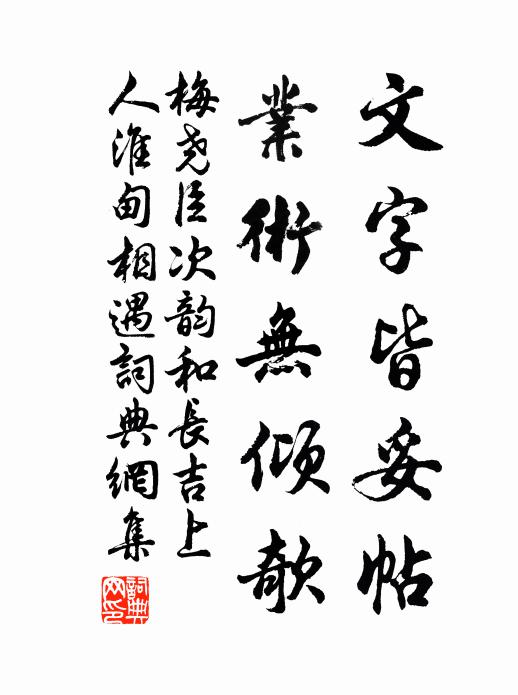 文字皆妥帖
業術無傾欹
梅堯臣次韵和長吉上
人淮甸相遇詞典網集
詞典網印